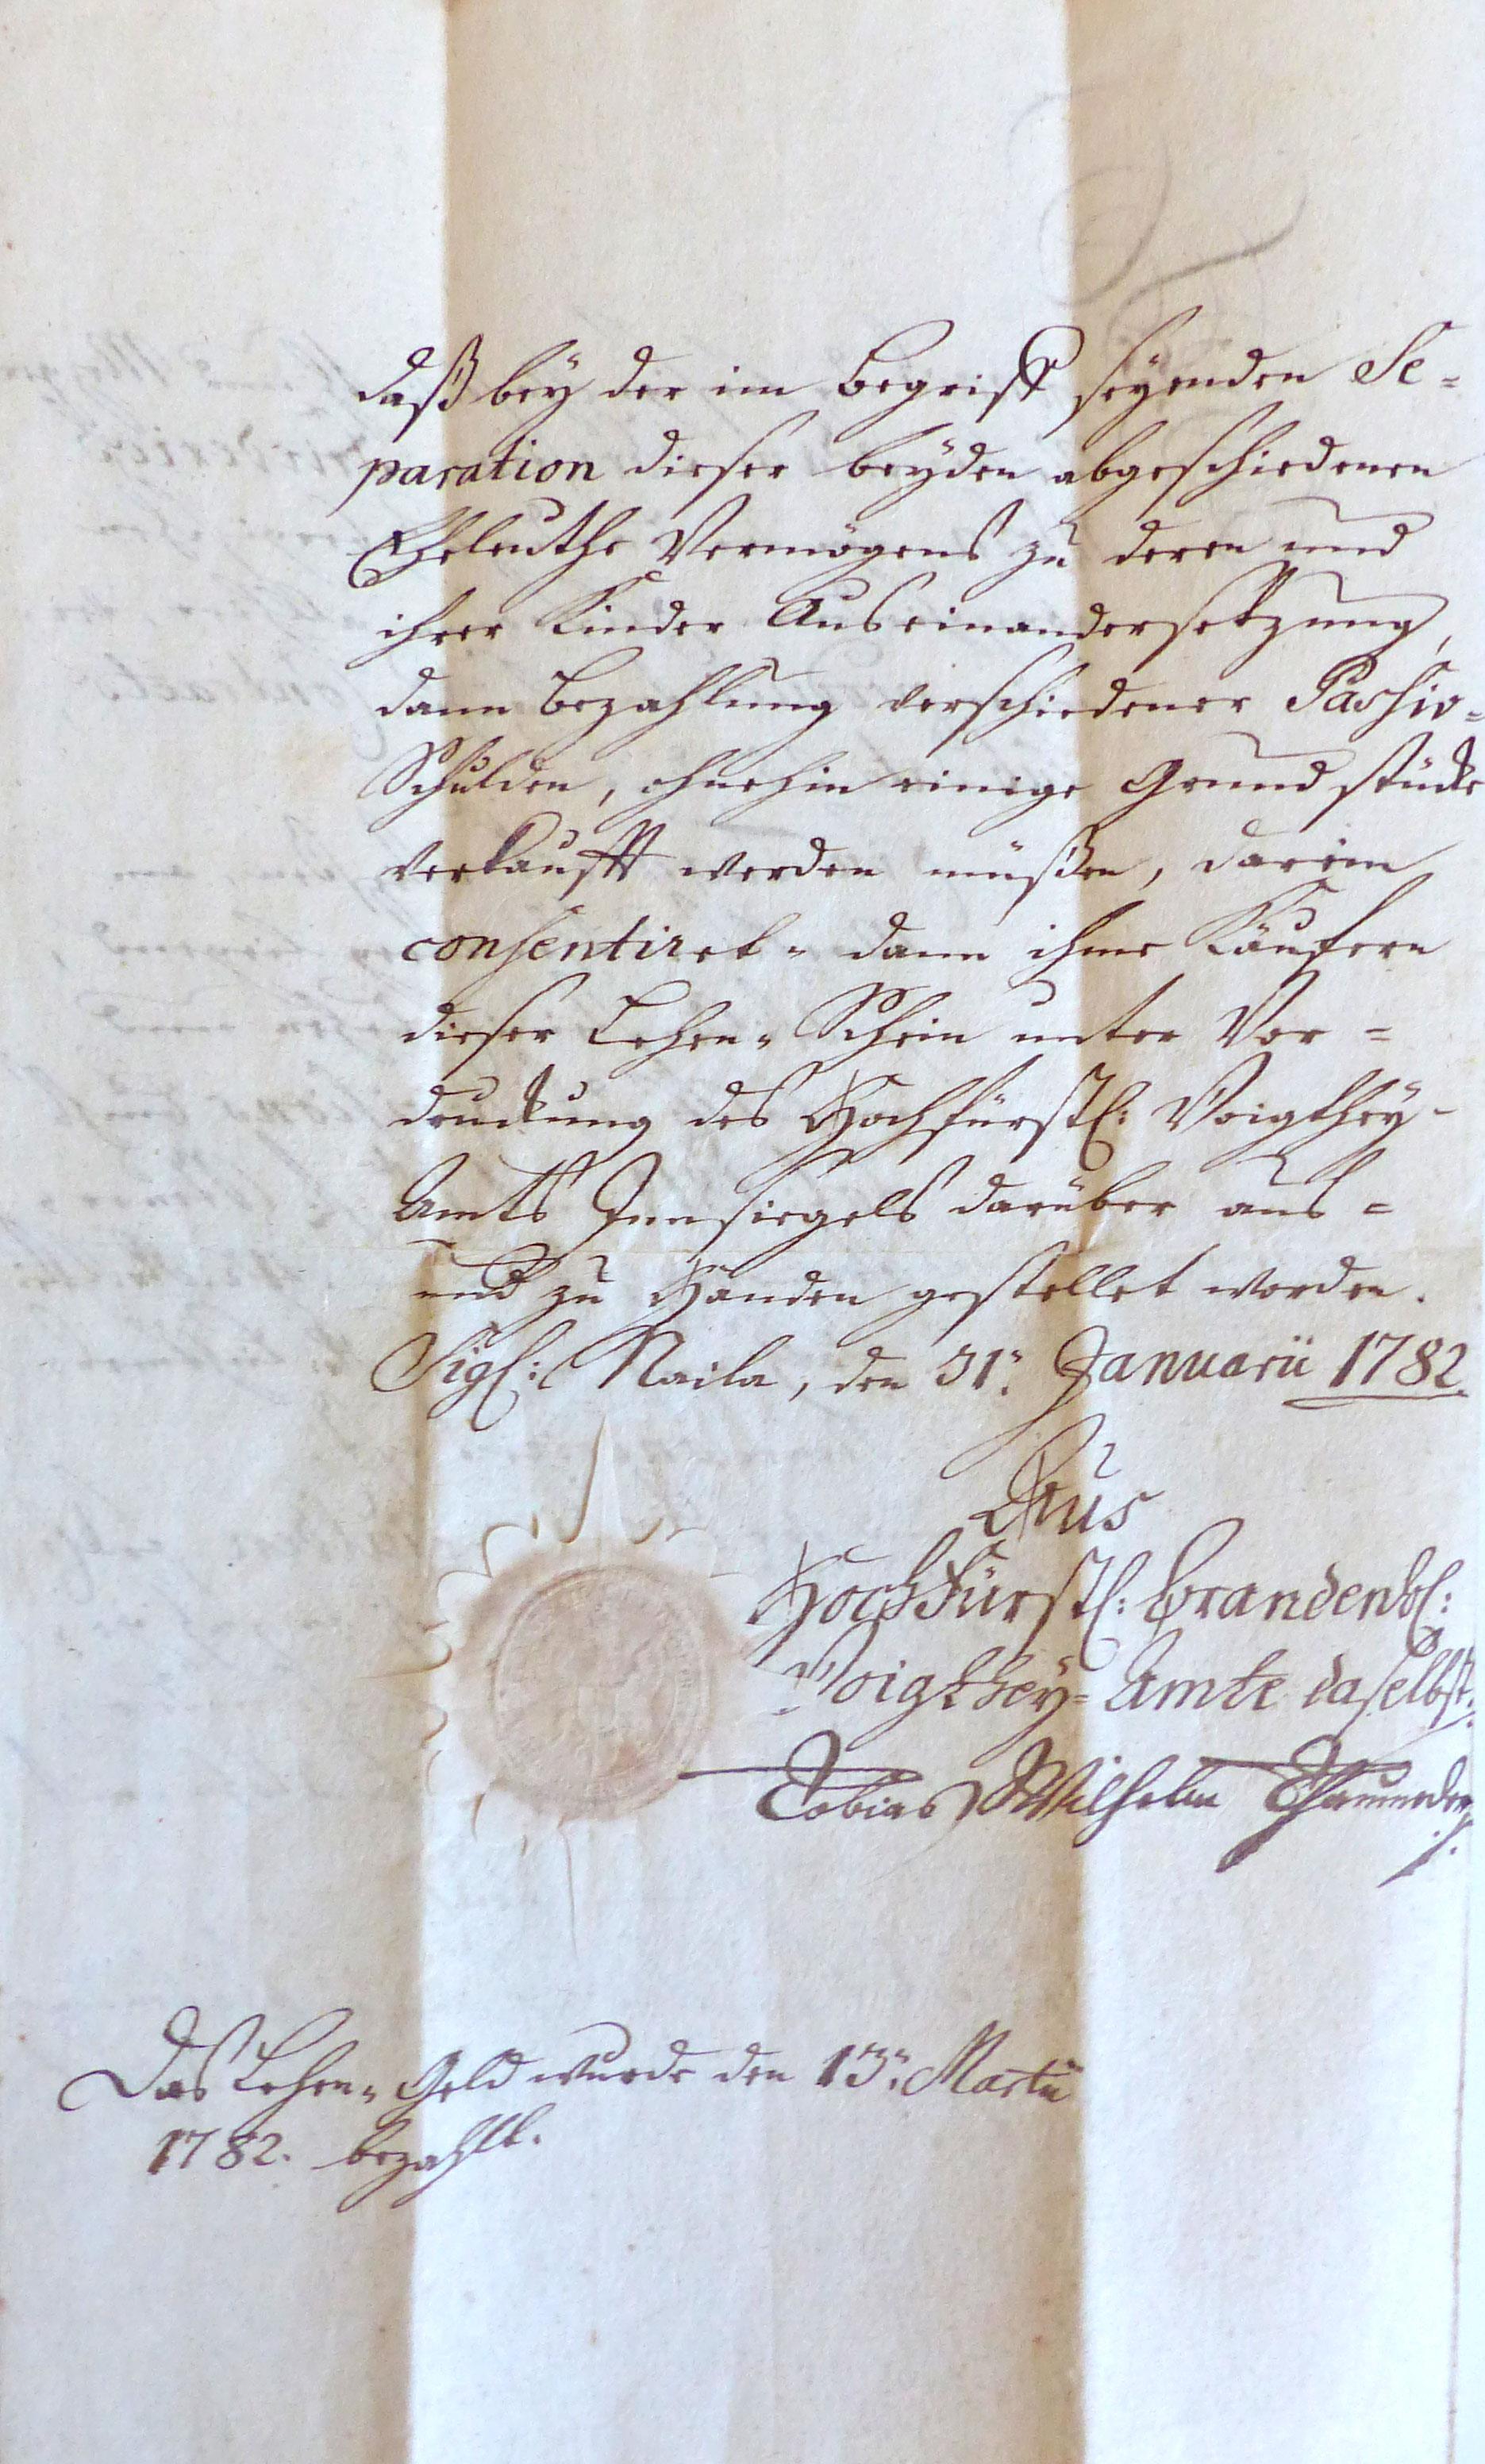 daß bey der im Begriff seyenden Se=
paration dieser beyden abgeschiedenen
Eheleuthe Vermögens zu deren und
ihrer Kinder Auseinandersetzung,
dann Bezahlung verschiedener Passiv=
Schulden, ohnehin einige Grundstücke
verkaufft werden müßen, darein
consentiret- dann ihme Käufern
dieser Lehen-Schein unter Vor=
druckung des Hochfürstl: Voigthey-
Amts Innsiegels darüber aus=
und zu Händen gestellet worden.
Sigl: Naila, den 31: Januarii 1782.
Aus
Hochfürstl: Brandenbl:
Voigthey=Amte daselbst.
Tobias Wilhelm
Das Lehen-Geld wurde den 13: Martii
1782. bezahlt.